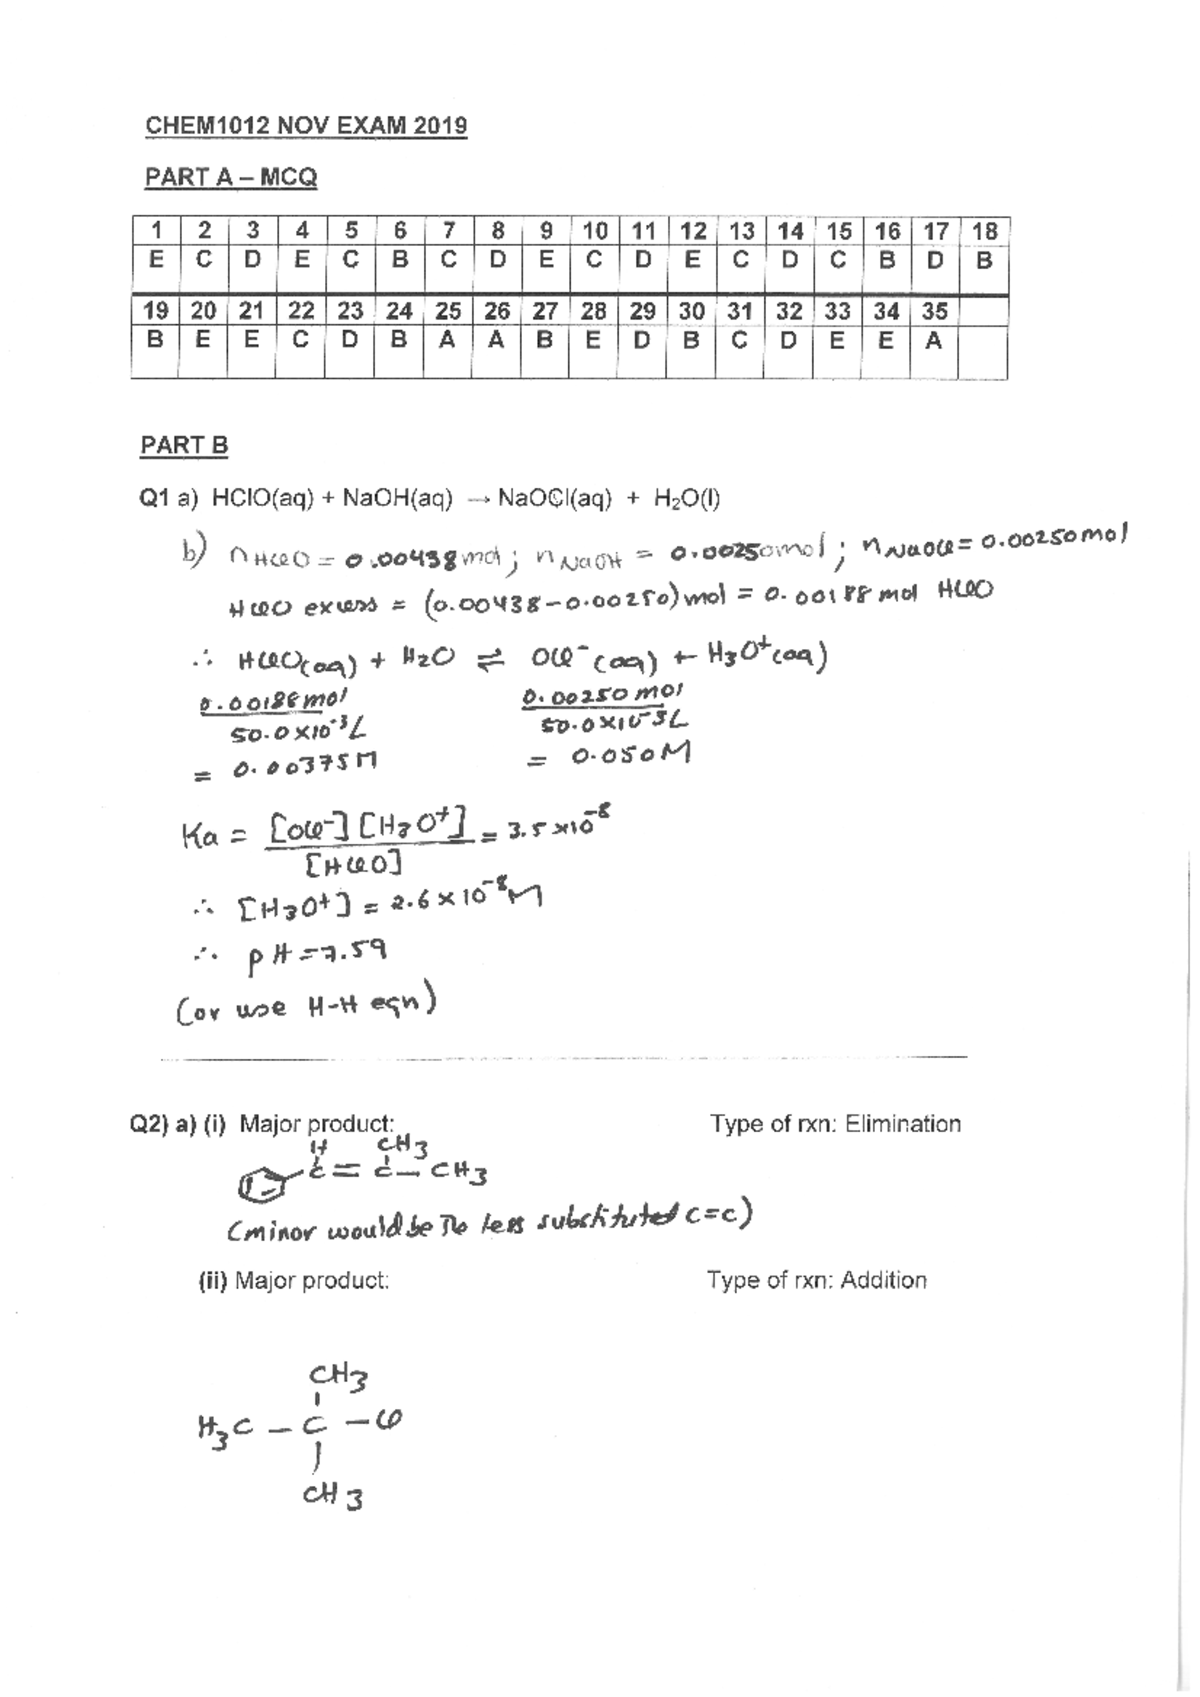 CHEM1012 NOV EXAM 2019
PART A – MCQ
1 2 3 4 5 6 7 8 9 10 11 12 13 14 15 16 17 18
E C D E C B C D E C D E C D C B D B
19 20 21 22 23 24 25 26 27 28 29 30 31 32 33 34 35
B E E C D B A A B E D B C D E E A
PART B
Q1 a) HClO(aq) + NaOH(aq) → NaOCl(aq) + H₂O(l)
b) nHClO = 0.00438 mol ; nNaOH = 0.00250 mol ; nNaOCl = 0.00250 mol
HClO excess = (0.00438 – 0.00250) mol = 0.00188 mol HClO
∴ HClO(aq) + H₂O ⇌ OCl⁻(aq) + H₃O⁺(aq)
0.00188 mol 0.00250 mol
50.0×10⁻³L 50.0×10⁻³L
= 0.00375M = 0.050M
Ka = [OCl⁻] [H₃O⁺] = 3.5×10⁻⁸
[HClO]
∴ [H₃O⁺] = 2.6 × 10⁻⁸M
∴ pH = 7.59
(or use H-H eqn)
Q2) a) (i) Major product: Type of rxn: Elimination
H CH₃
C = C – CH₃
(minor would be the less substituted C=C)
(ii) Major product: Type of rxn: Addition
CH₃
H₃C – C – Cl
CH₃